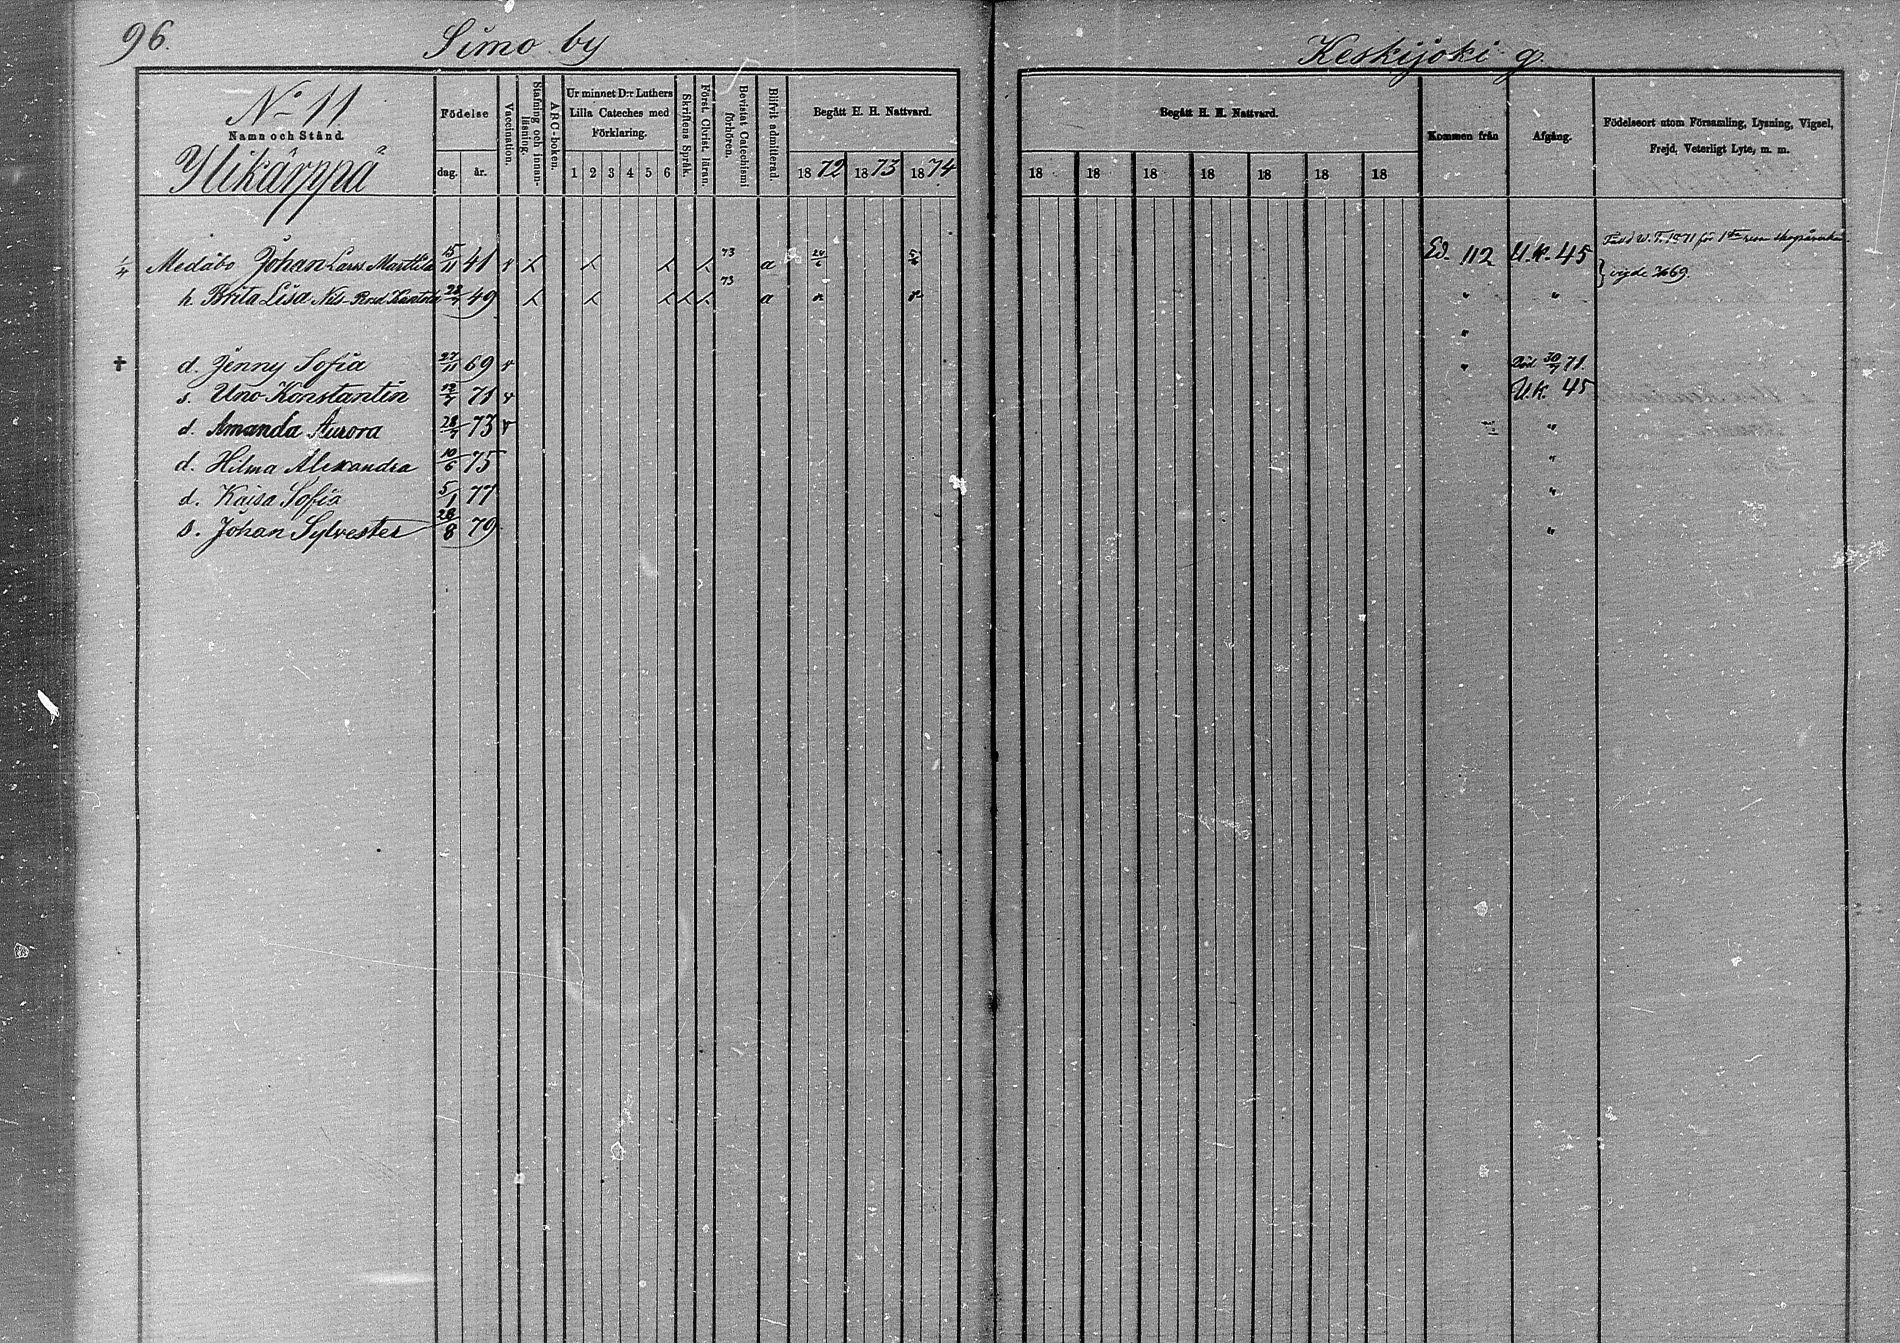 96.
Simo by
Keskijoki g.
No 11
Namn och Stånd.
Ylikärppä
Födelse
dag. år.
Vaccination.
Stafning och innanläsning.
ABC-boken.
Ur minnet D:r Luthers Lilla Cateches med Förklaring.
1 2 3 4 5 6
Skriftens Språk.
Först. Christ. läran.
Bevistat Catechismi förhören.
Blifvit admitterad.
Begått H. H. Nattvard.
1872 1873 1874
Begått H. H. Nattvard.
18 18 18 18 18 18 18
Kommen från
Afgång.
Födelseort utom Församling, Lysning, Vigsel, Frejd, Veterligt Lyte, m. m.
1/4 Medåbo Johan Larss Marttila 15/11 41 v 73 a 24/6 Ed. 112 U.K. 45
h. Brita Lisa Nils 49 73 a " " vigde 69.
"
† d. Jenny Sofia 27/11 69 v " Död 30/7 71.
s. Uno Konstantin 71 v U.K. 45
d. Amanda Aurora 28/7 73 v "
d. Hilma Alexandra 10/6 75 "
d. Kaisa Sofia 5/1 77 "
s. Johan Sylvester 28/8 79 "